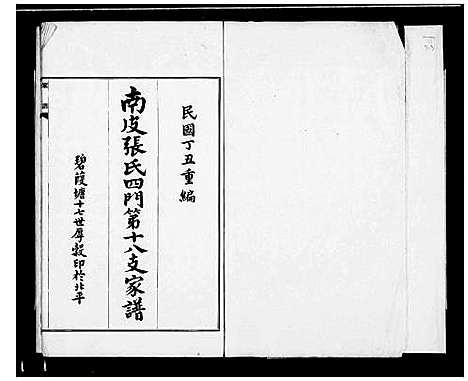 民國丁丑重編
南皮張氏四門第十八支家譜
碧葭塘十七世厚穀印於北平